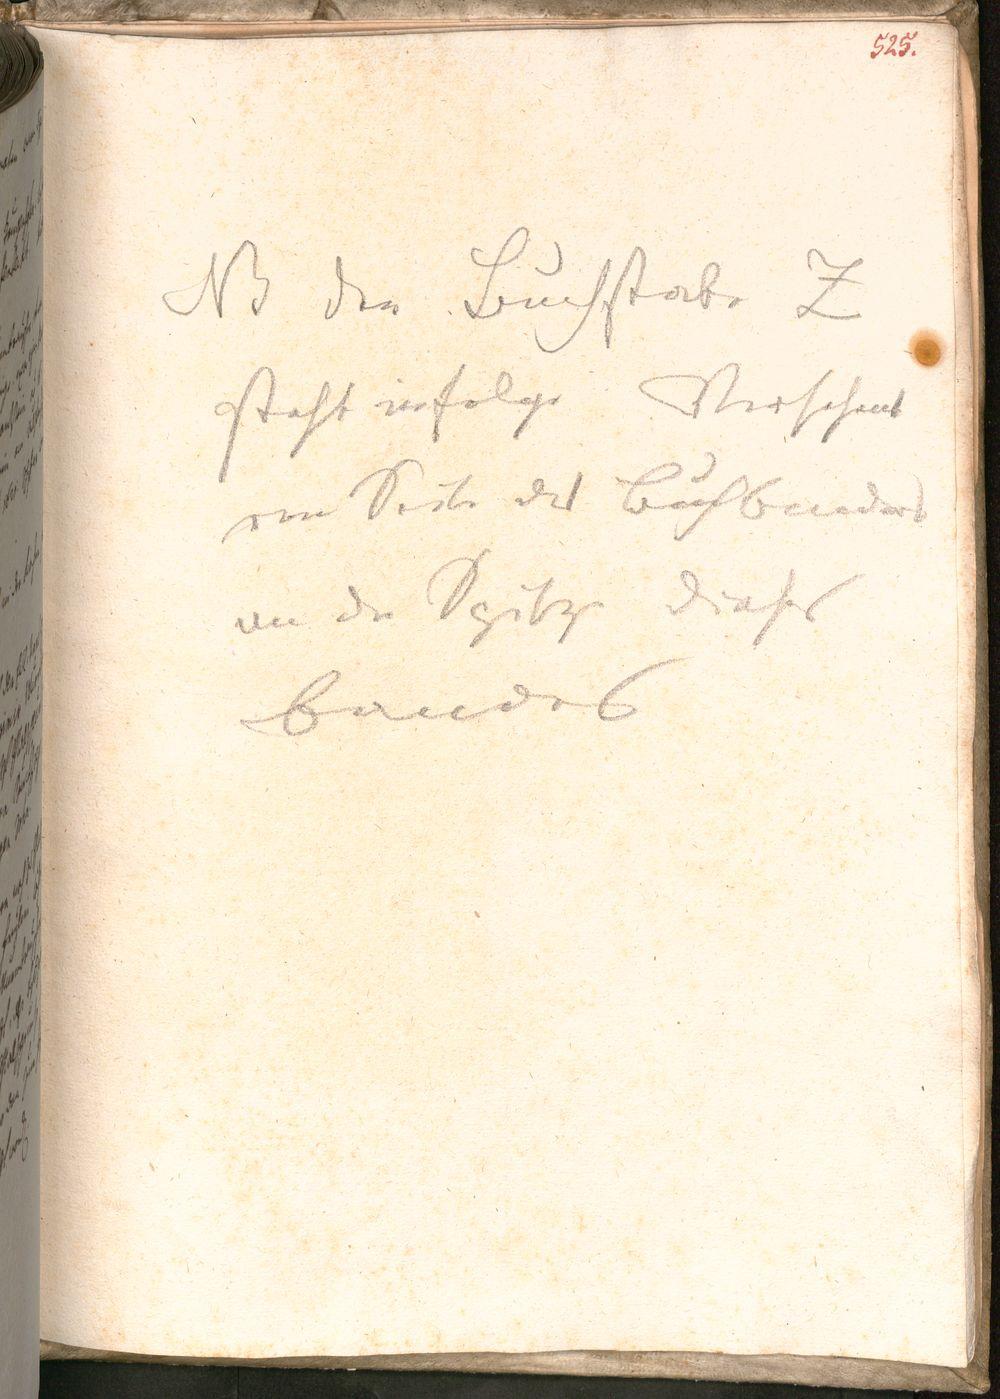 525.
NB der Buchstabe Z
steht infolge Versehens
von Seite des Buchbinders
an der Spitze dieses
Bandes